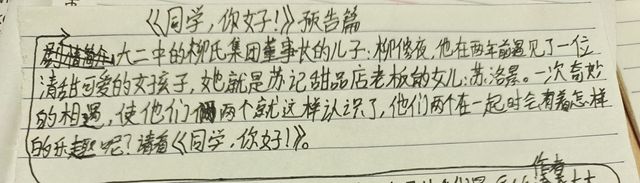 《同学,你好!》预告篇
剧情简介:大二中的柳氏集团董事长的儿子:柳俊夜,他在两年前遇见了一位
清甜可爱的女孩子,她就是苏记甜品店老板的女儿:苏洛星。一次奇妙
的相遇,使他们俩个就这样认识了,他们两个在一起时会有着怎样
的乐趣呢?请看《同学,你好!》。
作者